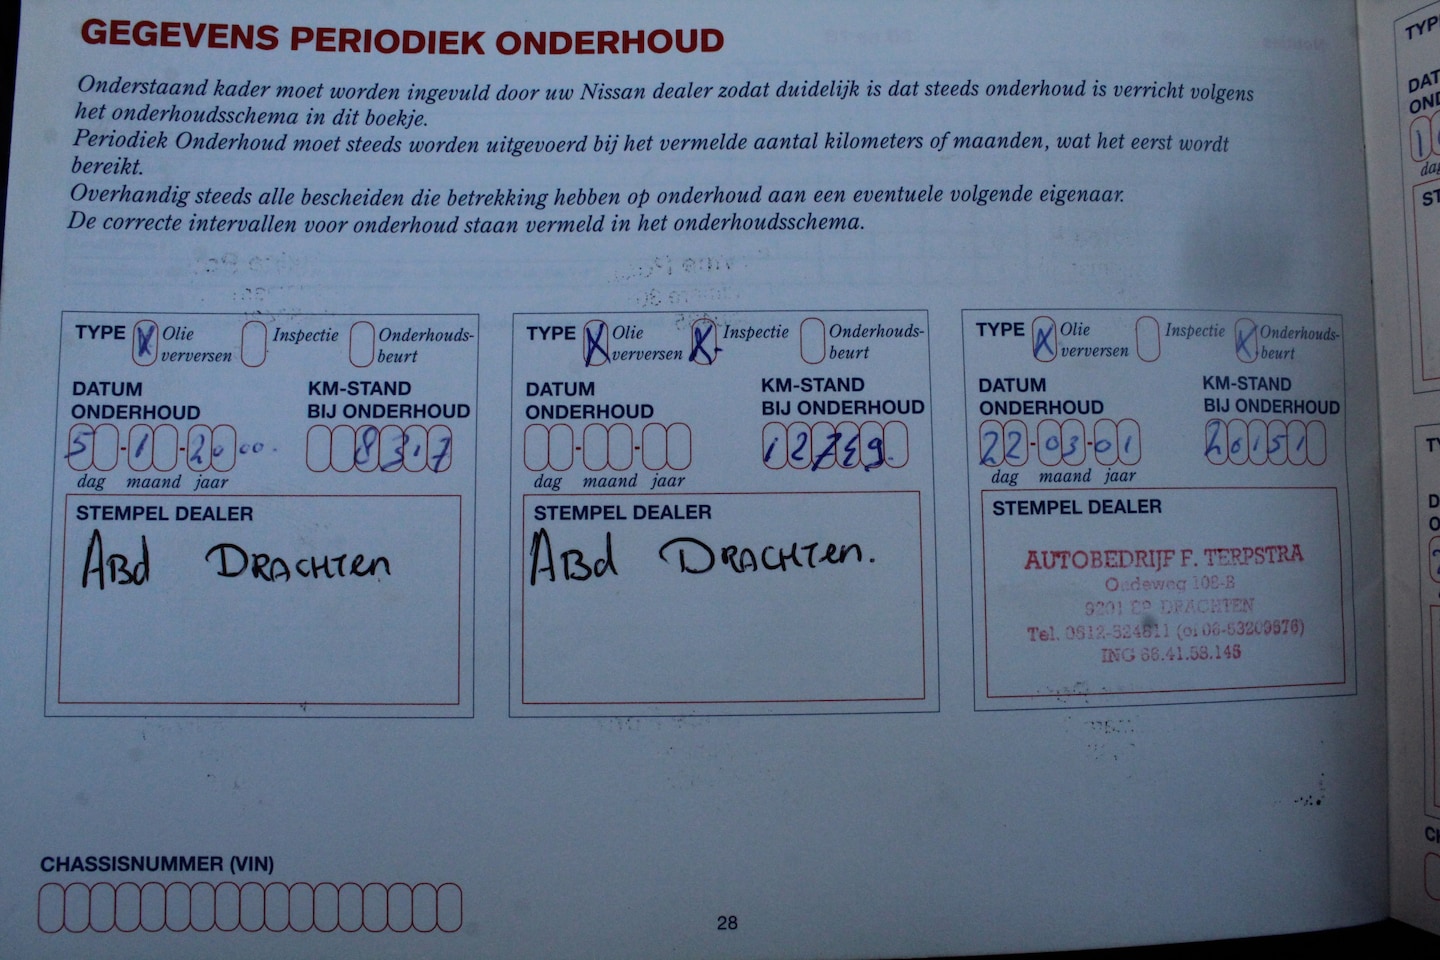 GEGEVENS PERIODIEK ONDERHOUD
Onderstaand kader moet worden ingevuld door uw Nissan dealer zodat duidelijk is dat steeds onderhoud is verricht volgens
het onderhoudsschema in dit boekje.
Periodiek Onderhoud moet steeds worden uitgevoerd bij het vermelde aantal kilometers of maanden, wat het eerst wordt
bereikt.
Overhandig steeds alle bescheiden die betrekking hebben op onderhoud aan een eventuele volgende eigenaar.
De correcte intervallen voor onderhoud staan vermeld in het onderhoudsschema.
TYPE X Olie verversen Inspectie Onderhouds-
beurt
DATUM
ONDERHOUD
KM-STAND
BIJ ONDERHOUD
5 - 1 - 2000.
8317
dag maand jaar
STEMPEL DEALER
ABd DRACHTen
TYPE X Olie verversen X Inspectie Onderhouds-
beurt
DATUM
ONDERHOUD
KM-STAND
BIJ ONDERHOUD
12749.
dag maand jaar
STEMPEL DEALER
ABd DRACHTen.
TYPE X Olie verversen Inspectie X Onderhouds-
beurt
DATUM
ONDERHOUD
KM-STAND
BIJ ONDERHOUD
22-03-01
20151
dag maand jaar
STEMPEL DEALER
AUTOBEDRIJF F. TERPSTRA
Oudeweg 108-B
9201 DRACHTEN
Tel. 0512-524811 (of 06-53209876)
ING 66.41.58.145
CHASSISNUMMER (VIN)
28